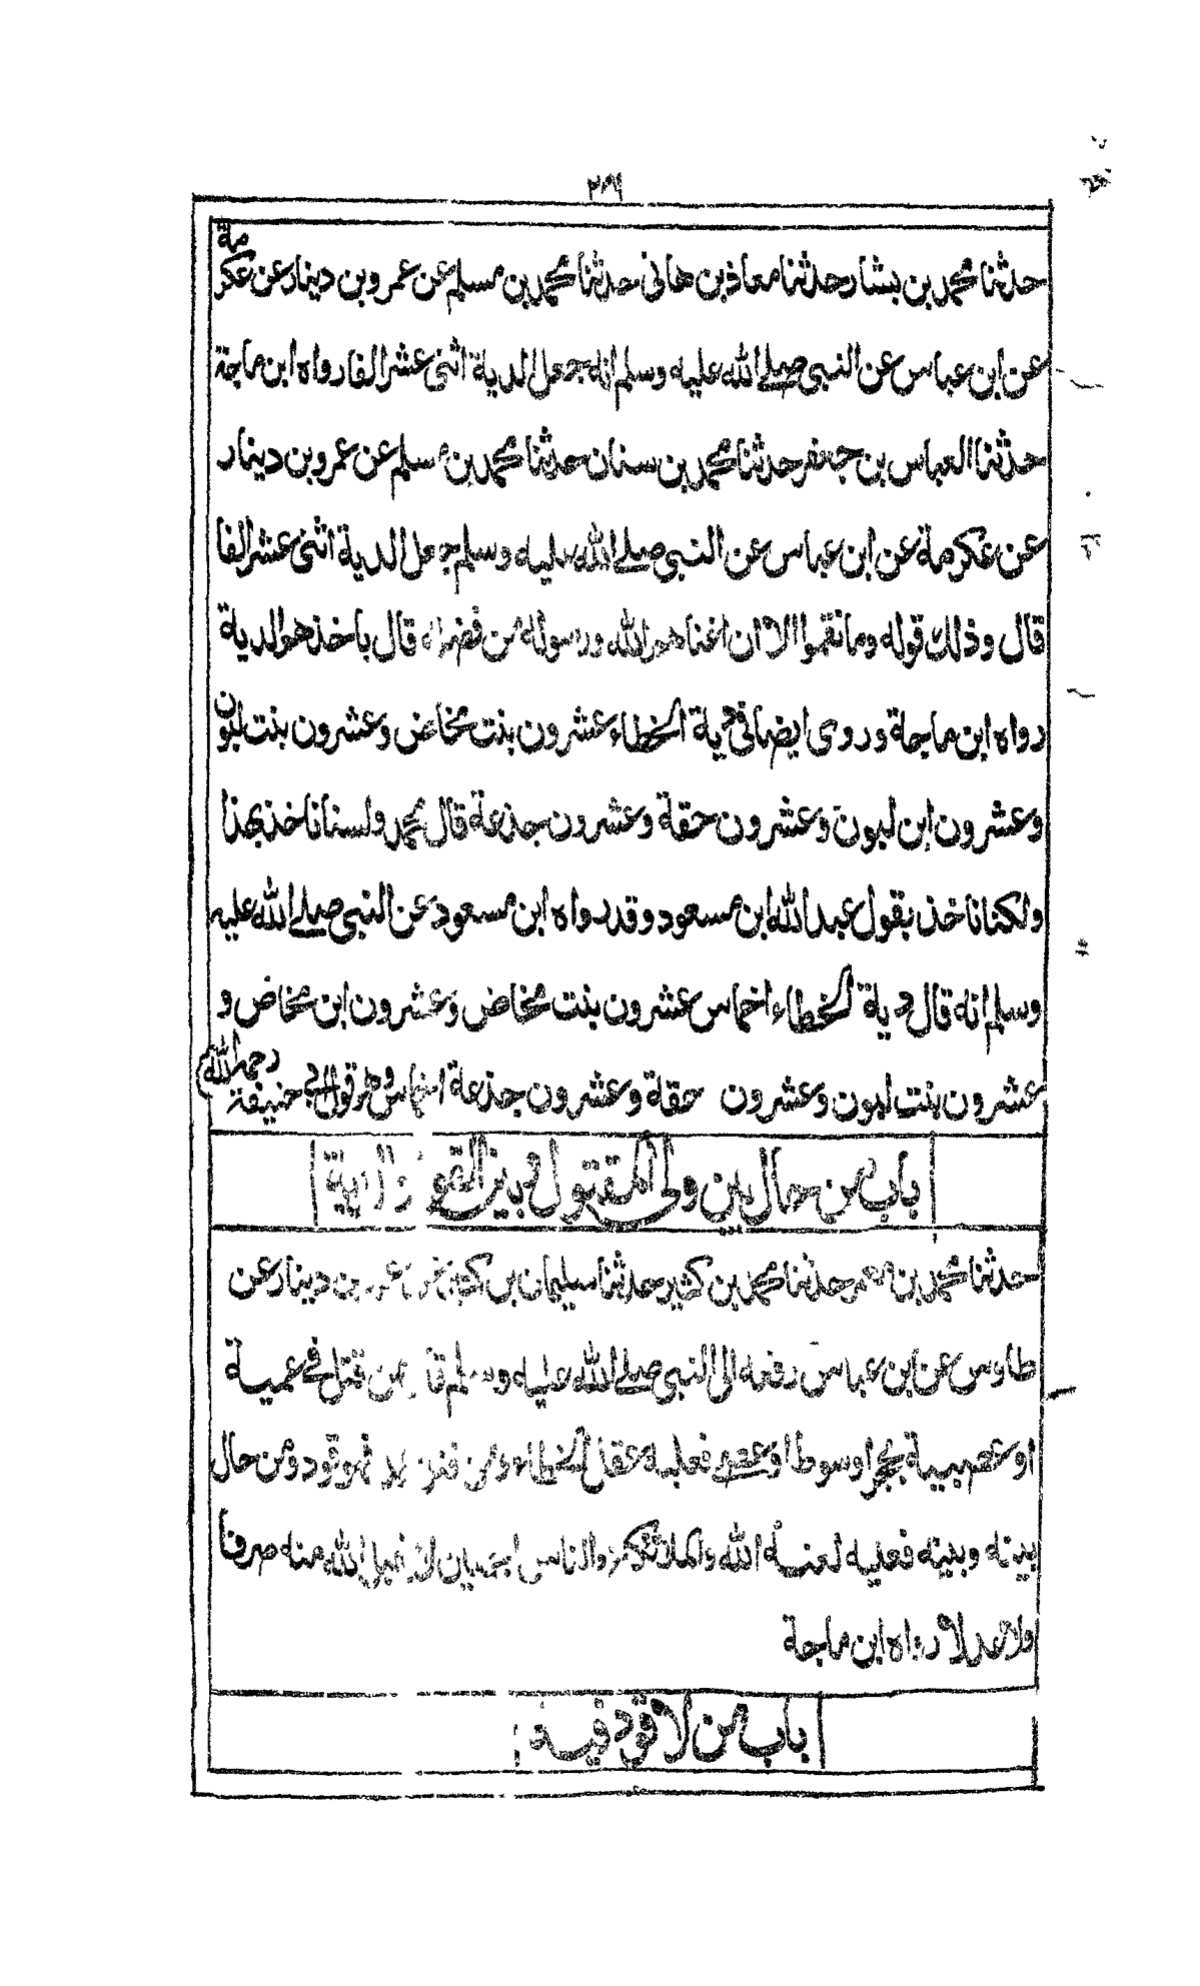 ٢٨٩
حدثنا محمد بن بشار حدثنا معاذ بن هانی حدثنا محمد بن مسلم عن عمرو بن دینار عن عکرمة
عن ابن عباس عن النبی صلے الله علیه وسلم انه جعل الدیة اثنی عشر الفا رواه ابن ماجة
حدثنا العباس بن جعفر حدثنا محمد بن سنان حدثنا محمد بن مسلم عن عمرو بن دینار
عن عکرمة عن ابن عباس عن النبی صلے الله علیه وسلم جعل الدیة اثنی عشر الفا
قال وذلك قوله وما نقموا الا ان اغناهم الله ورسوله من فضله قال باخذهم الدیة
رواه ابن ماجة وروی ایضا فی دیة الخطاء عشرون بنت مخاض وعشرون بنت لبون
وعشرون ابن لبون وعشرون حقة وعشرون جذعة قال محمد ولسنا ناخذ بهذا
ولکنا ناخذ بقول عبد الله ابن مسعود وقد رواه ابن مسعود عن النبی صلے الله علیه
وسلم انه قال دیة الخطاء اخماس عشرون بنت مخاض وعشرون ابن مخاض و
عشرون بنت لبون وعشرون حقة وعشرون جذعة اخماس وهو قول ابی حنیفة رحمه الله
باب من حال بین ولی المقتول وبین القود والدیة
حدثنا محمد بن معمر حدثنا محمد بن کثیر حدثنا سلیمان بن کثیر عن عمرو بن دینار عن
طاوس عن ابن عباس رفعه الی النبی صلے الله علیه وسلم قال من قتل فی عمیة
او عصبیة بحجر او سوط او عصی فعلیه عقل الخطاء ومن قتل عمدا فهو قود ومن حال
بینه وبینه فعلیه لعنة الله والملائکة والناس اجمعین لا یقبل الله منه صرفا
ولا عدلا رواه ابن ماجة
باب من لا قود فیه